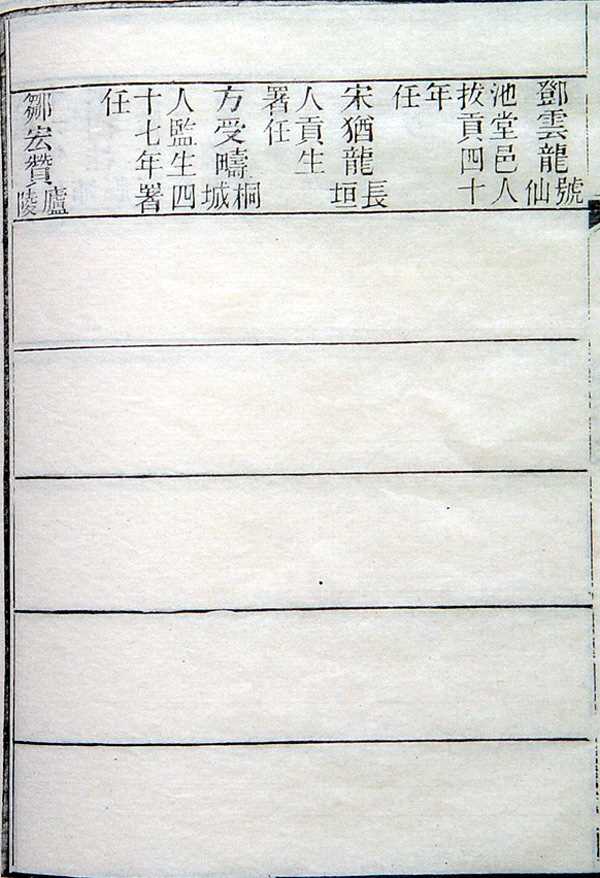 鄧雲龍號仙
池堂邑人
拔貢四十
年
任
宋猶龍長垣
人貢生
署任
方受疇桐城
人監生四
十七年署
任
鄒宏贊廬陵